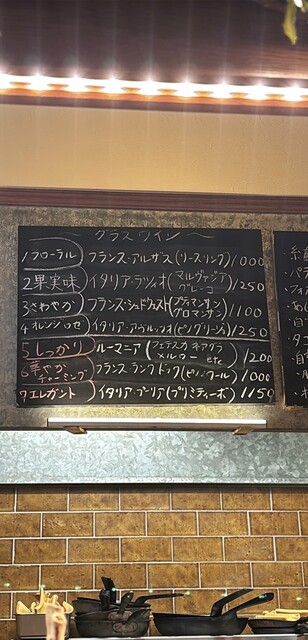 ～ グラスワイン ～
1フローラル フランス・アルザス(リースリング)1000
2果実味 イタリア・ラツィオ(マルヴァジア グレーコ)1250
3さわやか フランス・シュドウェスト(プティマンサン グロマンサン)1100
4オレンジロゼ イタリア・アブルッツォ(ピノグリージョ)1250
5しっかり ルーマニア(フェテアスカネアグラ メルロー etc)1200
6華やか チャーミング フランス・ラングドック(ピノ・ノワール)1000
7エレガント イタリア・プーリア(プリミティーボ)1150